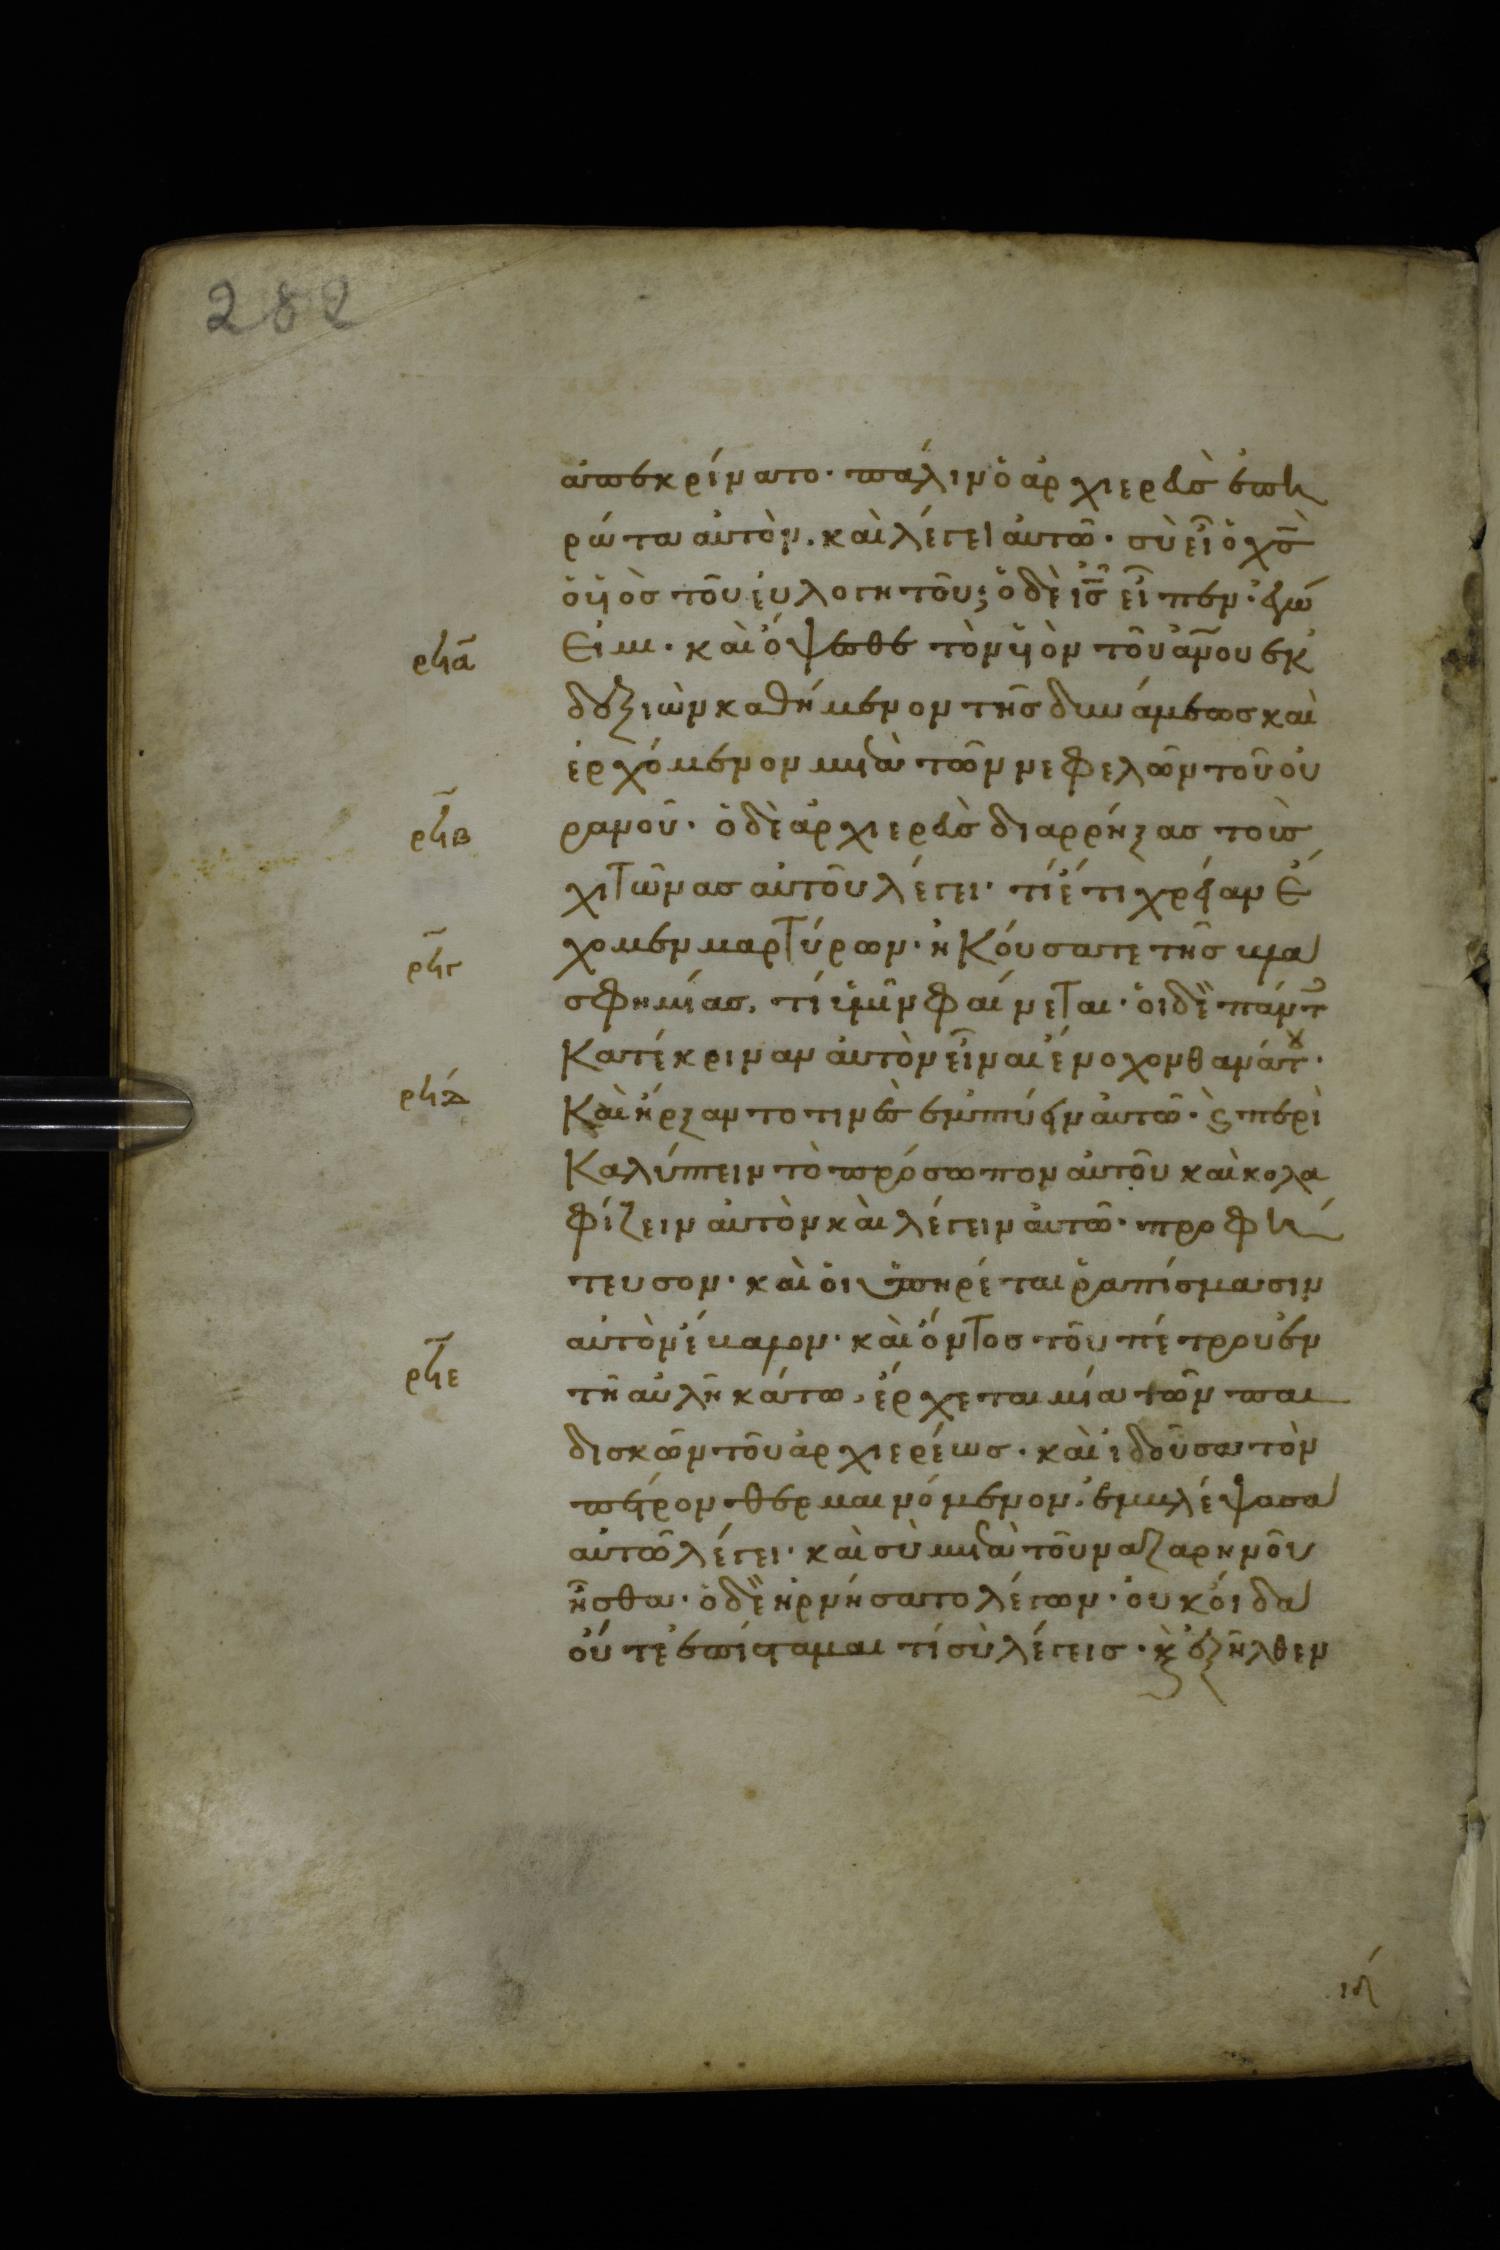 282
ἀπεκρίνατο· πάλιν ὁ ἀρχιερεὺσ ἐπη
ρώτα αὐτὸν. καὶ λέγει αὐτῶ· σὺ εἶ ὁ χσ̅
ὁ ϋἱὸσ τοῦ εὐλογητοῦ; ὁ δὲ ισ̅ εἶπεν· ἐγώ
Εἰμι· καὶ ὄψεσθε τὸν ϋἱὸν τοῦ ἀν̅ου ἐκ
δεξιῶν καθήμενον τῆσ δυνάμεωσ καὶ
ἐρχόμενον μετὰ τῶν νεφελῶν τοῦ οὐ
ρανοῦ· ὁ δὲ ἀρχιερεὺσ διαρρήξασ τοὺσ
χιτῶνασ αὐτοῦ λέγει· τί ἔτι χρείαν Ἔ
χομεν μαρτύρων· ἠΚούσατε τῆσ βλα
σφημίασ, τί ὑμῖν φαίνεται· ὁι δὲ πάντ
Κατέκριναν αὐτὸν εἶναι ἔνοχον θανάτ·
Καὶ ἤρξαντό τινεσ ἐμπτύειν αὐτῶ· ϗ περὶ
Καλύπτειν τὸ πρόσωπον αὐτοῦ καὶ κολα
φίζειν αὐτὸν καὶ λέγειν αὐτῶ· προφή
τευσον· καὶ ὁι ὑπηρέται ῥαπίσμασιν
αὐτὸν ἔβαλον· καὶ ὄντοσ τοῦ πέτρου ἐν
τῆ αὐλῆ κάτω, ἔρχεται μία τῶν παι
δισκῶν τοῦ ἀρχιερέωσ· καὶ ἰδοῦσα τὸν
πέτρον θερμαινόμενον, ἐμβλέψασα
αὐτῶ λέγει· καὶ σὺ μετὰ τοῦ ναζαρηνοῦ
ἦσθα· ὁ δὲ ἠρνήσατο λέγων· ὀυκ ὀίδα
ὀύτε ἐπίσταμαι τί σὺ λέγεισ· ϗ ἐξῆλθεν
ρϟα
ρϟβ
ρϟγ
ρϟδ
ρϟε